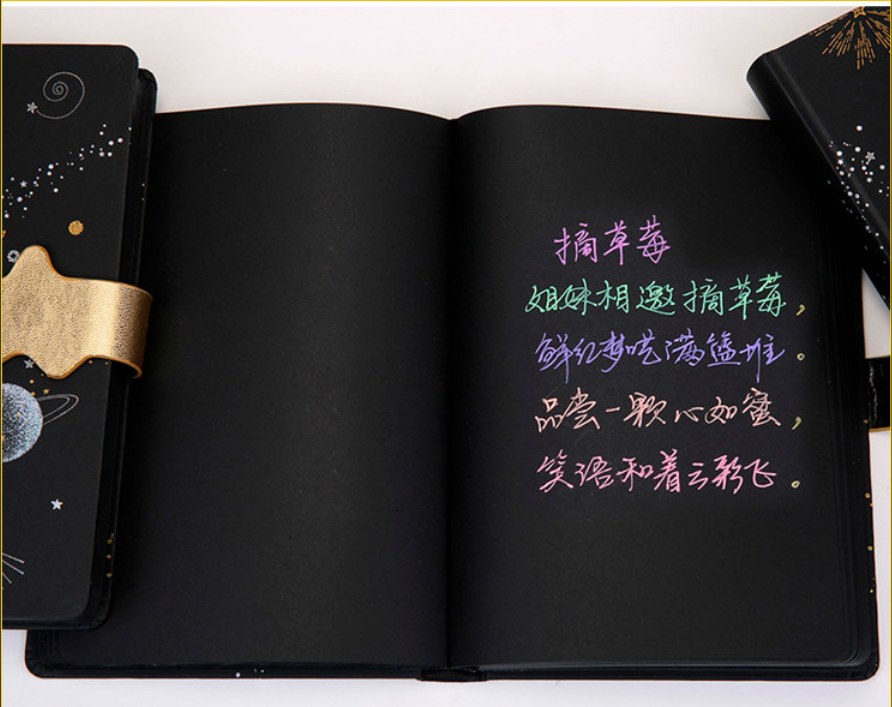 摘草莓
姐妹相邀摘草莓，
鲜红梦呓满篮堆。
品尝一颗心如蜜，
笑语和着云彩飞。